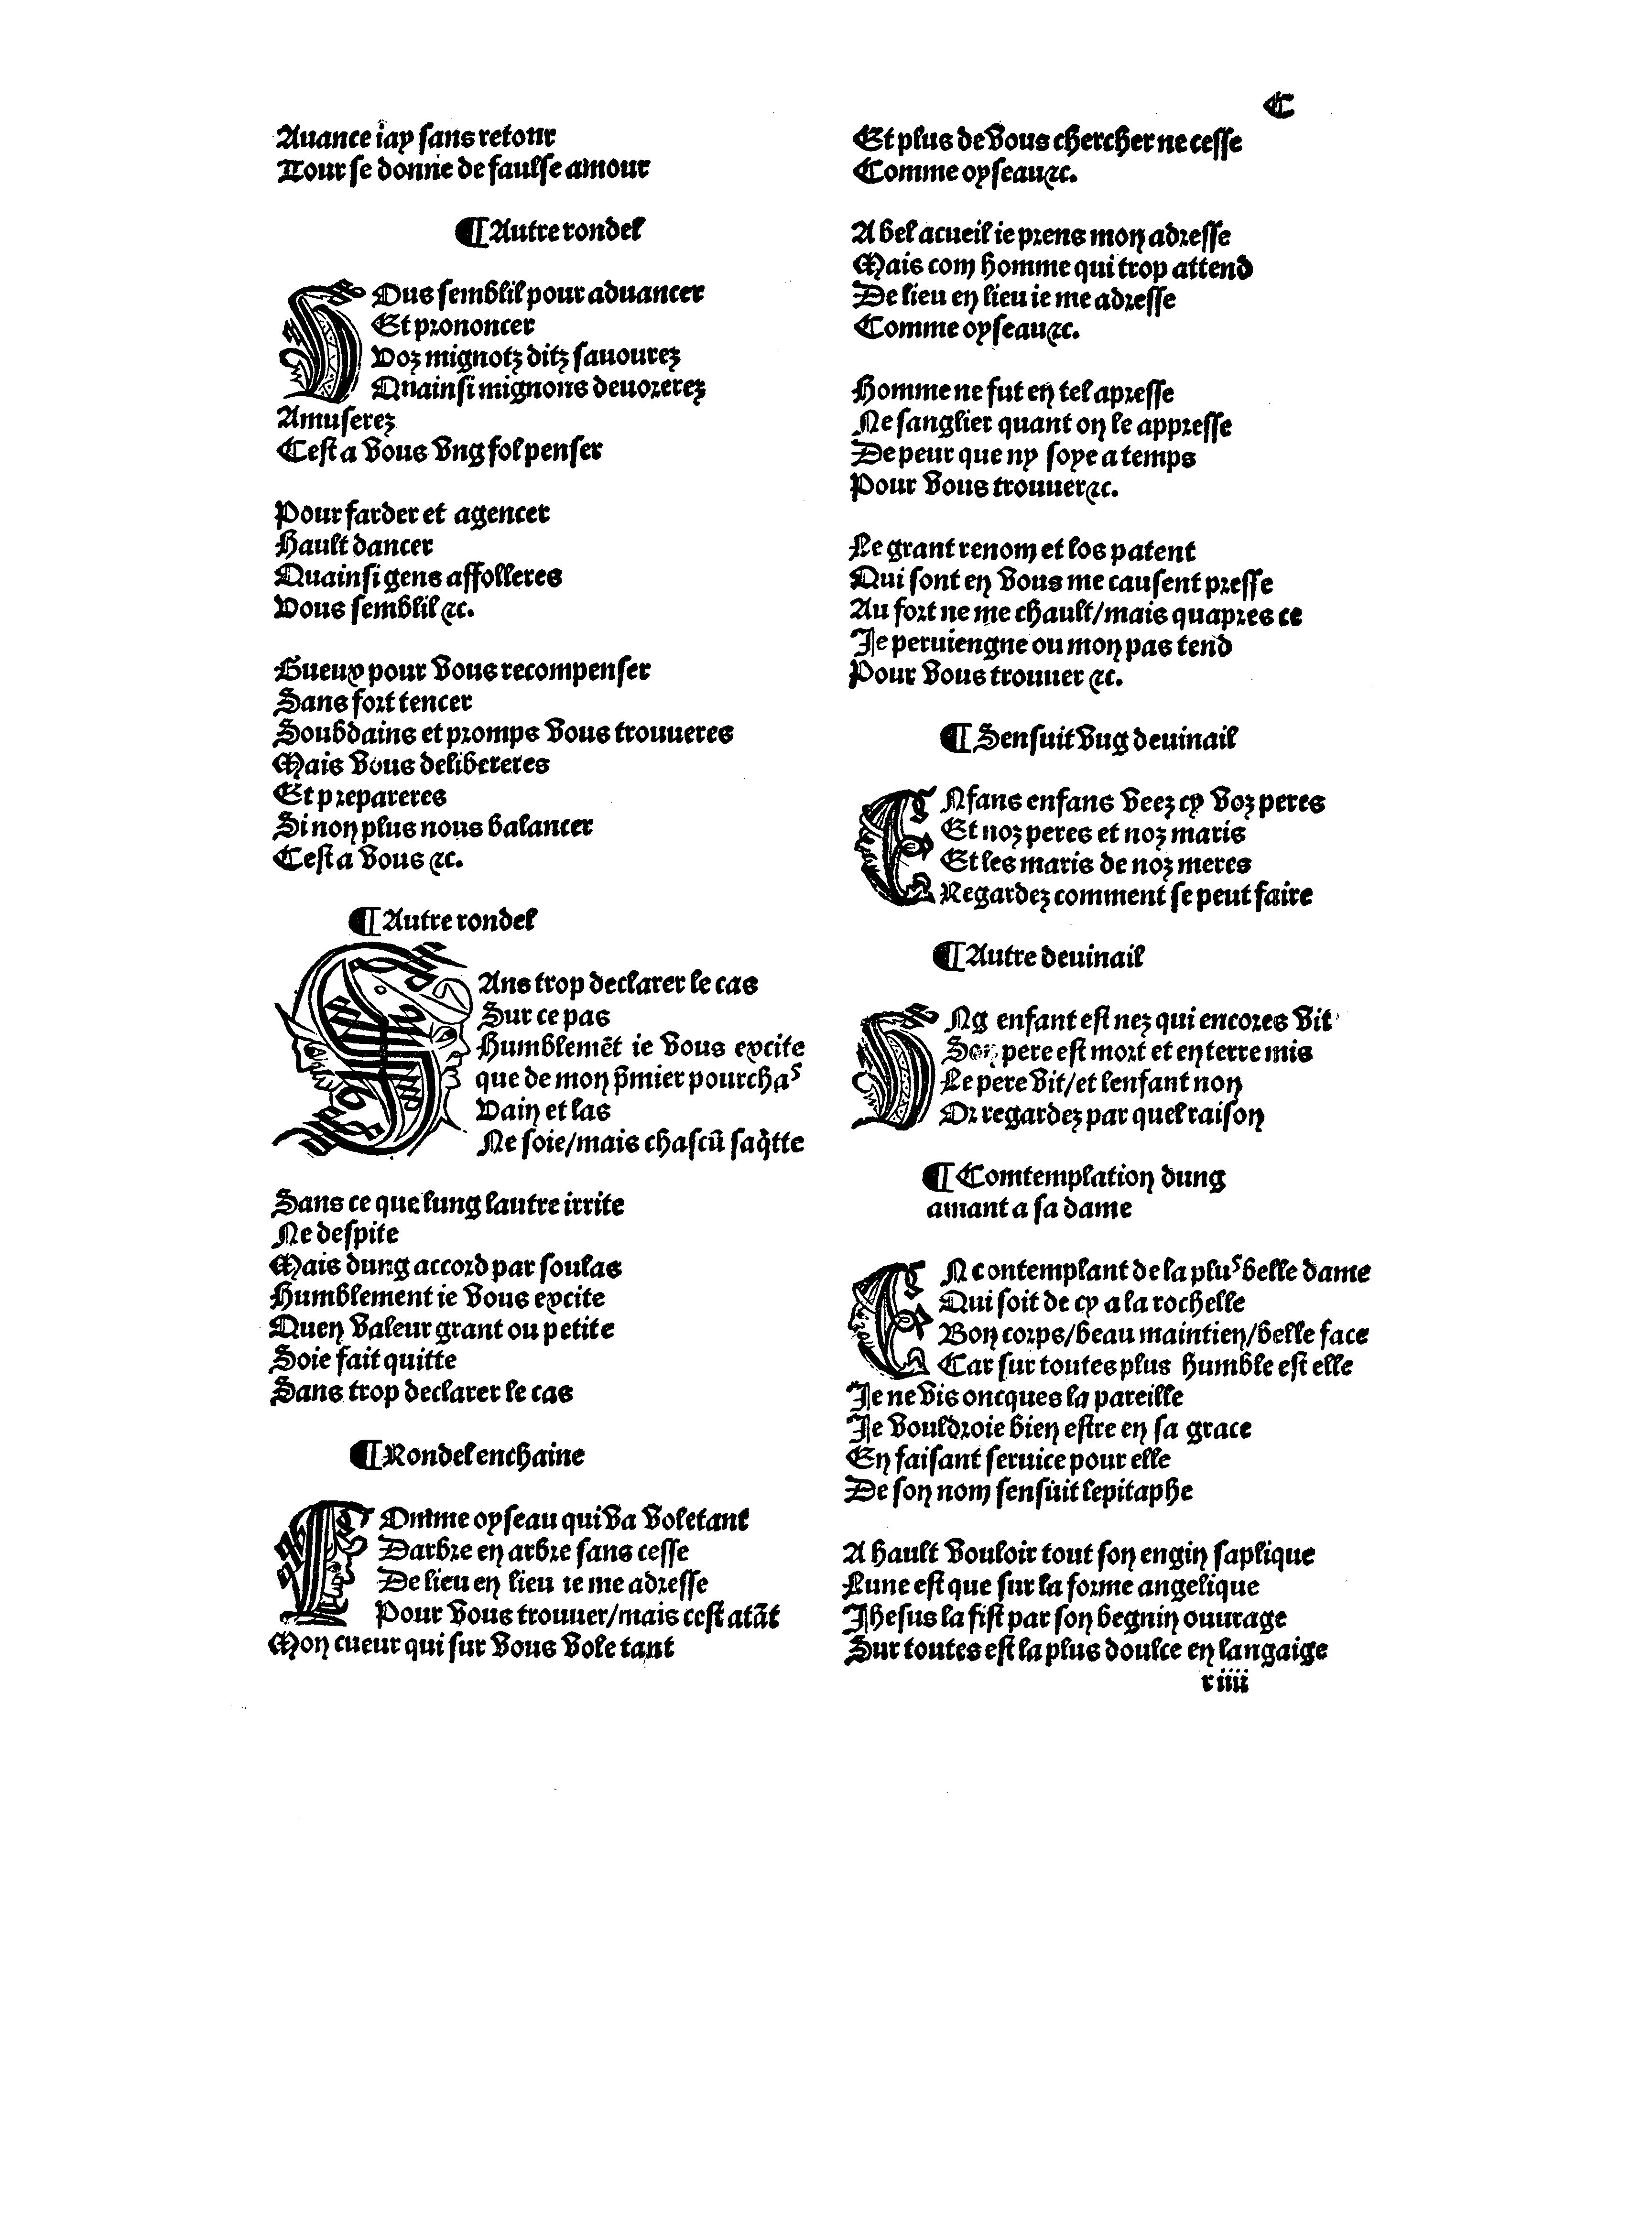 C
Auance iay sans retour
Tour se donne de faulse amour
¶ Autre rondel
VOus semblil pour aduancer
Et prononcer
Voz mignotz ditz sauourez
Quainsi mignons deuorerez
Amuserez
Cest a vous vng fol penser
Pour farder et agencer
Hault dancer
Quainsi gens affolleres
Vous semblil &c.
Gueux pour vous recompenser
Sans fort tencer
Soubdains et promps vous trouueres
Mais vous delibereres
Et prepareres
Si non plus nous balancer
Cest a vous &c.
¶ Autre rondel
SAns trop declarer le cas
Sur ce pas
Humblemēt ie vous excite
que de mon p̄mier pourchas
Vain et las
Ne soie/mais chascū saq̄tte
Sans ce que lung lautre irrite
Ne despite
Mais dung accord par soulas
Humblement ie vous excite
Quen valeur grant ou petite
Soie fait quitte
Sans trop declarer le cas
¶ Rondel enchaine
COmme oyseau qui va voletant
Darbre en arbre sans cesse
De lieu en lieu ie me adresse
Pour vous trouuer/mais cest atāt
Mon cueur qui sur vous vole tant
Et plus de vous chercher ne cesse
Comme oyseau &c.
A bel acueil ie prens mon adresse
Mais com homme qui trop attend
De lieu en lieu ie me adresse
Comme oyseau &c.
Homme ne fut en tel apresse
Ne sanglier quant on le appresse
De peur que ny soye a temps
Pour vous trouuer &c.
Le grant renom et los patent
Qui sont en vous me causent presse
Au fort ne me chault/mais quapres ce
Je peruiengne ou mon pas tend
Pour vous trouuer &c.
¶ Sensuit vug deuinail
ENfans enfans veez cy voz peres
Et noz peres et noz maris
Et les maris de noz meres
Regardez comment se peut faire
¶ Autre deuinail
VNg enfant est nez qui encores vit
Son pere est mort et en terre mis
Le pere vit/et lenfant non
Or regardez par quel raison
¶ Comtemplation dung
amant a sa dame
EN contemplant de la plus belle dame
Qui soit de cy a la rochelle
Bon corps/beau maintien/belle face
Car sur toutes plus humble est elle
Je ne vis oncques la pareille
Je vouldroie bien estre en sa grace
En faisant seruice pour elle
De son nom sensuit lepitaphe
A hault vouloir tout son engin saplique
Lune est que sur la forme angelique
Jhesus la fist par son begnin ouurage
Sur toutes est la plus doulce en langaige
r iiii